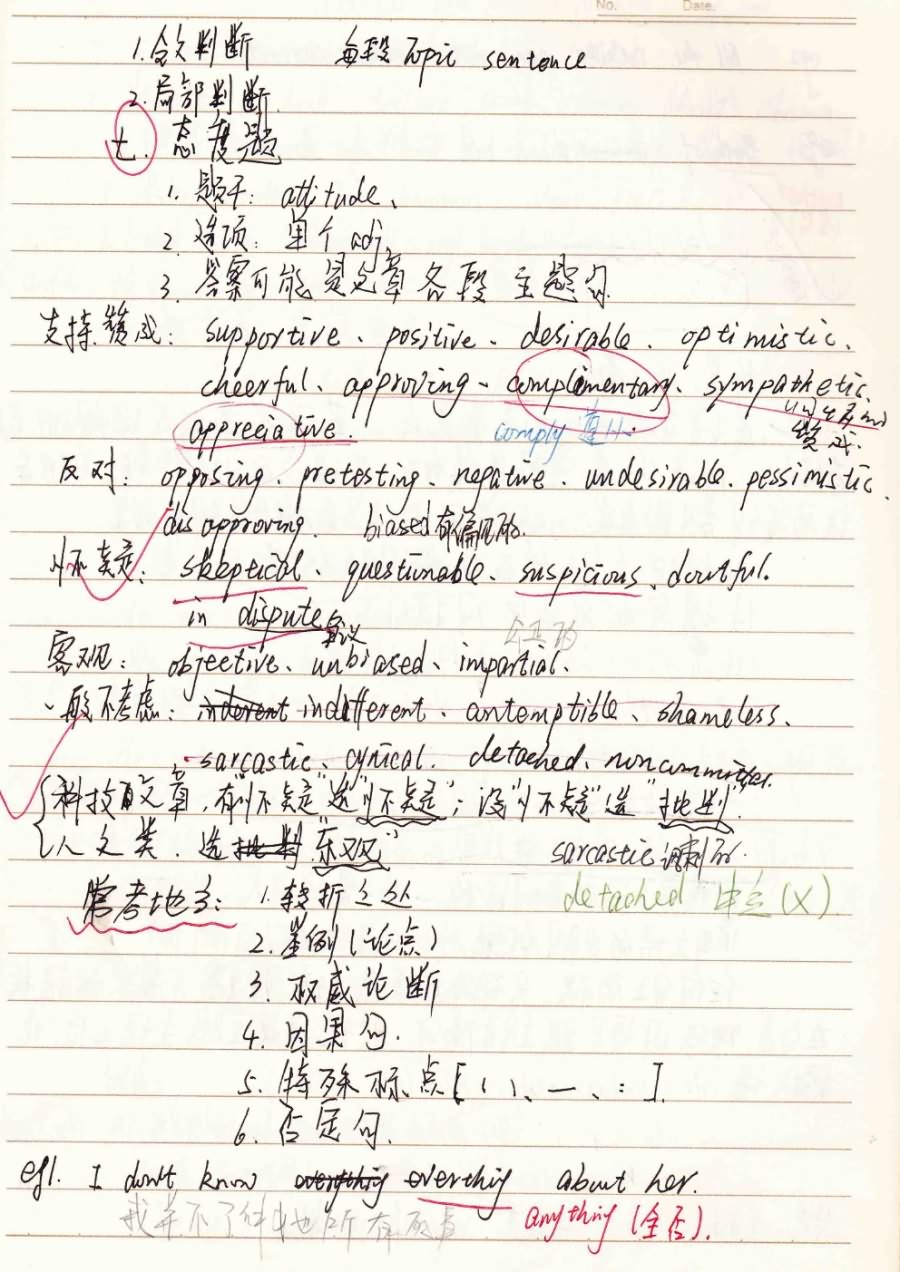 No. Date.
1.全文判断 每段Topic sentence
2.局部判断
七. 态度题
1. 题干: attitude、
2. 选项: 单个adj,
3. 答案可能是文章各段主题句
支持.赞成: supportive、positive、desirable、optimistic、
cheerful、approving、complimentary、sympathetic、
understand
appreciative. comply 遵从. 赞成.
反对: opposing、pretesting、negative、undesirable、pessimistic、
disapproving. biased有偏见的.
怀疑: skeptical、questionable、suspicious、doutful.
in dispute争议 公正的
客观: objective、unbiased、impartial.
一般不考虑: indifferent、contemptible、shameless、
sarcastic、cynical. detached、noncommittal.
科技文章,有"怀疑"选"怀疑"; 没"怀疑"选"批判".
人文类. 选批判"乐观" sarcastic 讽刺的.
常考地方: 1.转折之处 detached 中立(X)
2.举例(论点)
3.权威论断
4.因果句.
5.特殊标点[()、—、:].
6.否定句.
eg1. I don't know everything everthing about her.
我并不了解她所有的事 anything (全否).